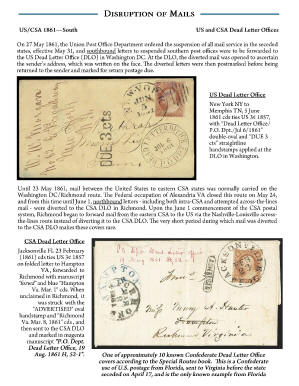 DISRUPTION OF MAILS
US/CSA 1861—South
US and CSA Dead Letter Offices
On 27 May 1861, the Union Post Office Department ordered the suspension of all mail service in the seceded
states, effective May 31, and southbound letters to suspended southern post offices were to be forwarded to
the US Dead Letter Office (DLO) in Washington DC. At the DLO, the diverted mail was opened to ascertain
the sender's address, which was written on the face. The diverted letters were then postmarked before being
returned to the sender and marked for return postage due.
US Dead Letter Office
New York NY to
Memphis TN, 5 June
1861 cds ties US 3¢ 1857,
with "Dead Letter Office/
P.O. Dpt./Jul 6/1861"
double-oval and "DUE 3
cts" straightline
handstamps applied at the
DLO in Washington.
DUE 3 cts
Until 23 May 1861, mail between the United States to eastern CSA states was normally carried on the
Washington DC/Richmond route. The Federal occupation of Alexandria VA closed this route on May 24,
and from this time until June 1, northbound letters - including both intra-CSA and attempted across-the-lines
mail - were diverted to the CSA DLO in Richmond. Upon the June 1 commencement of the CSA postal
system, Richmond began to forward mail from the eastern CSA to the US via the Nashville-Louisville across-
the-lines route instead of diverting it to the CSA DLO. The very short period during which mail was diverted
to the CSA DLO makes these covers rare.
CSA Dead Letter Office
Jacksonville Fl. 23 February
[1861] cds ties US 3¢ 1857
on folded letter to Hampton
VA, forwarded to
Richmond with manuscript
"forwd" and blue "Hampton
Va. Mar. 1" cds. When
unclaimed in Richmond, it
was struck with the
"ADVERTISED" oval
handstamp and "Richmond
Va. Mar. 8, 1861" cds, and
then sent to the CSA DLO
and marked in magenta
manuscript "P.O. Dept.
Dead Letter Office, 19
Aug. 1861 H, 52-1".
One of approximately 10 known Confederate Dead Letter Office
covers according to the Special Routes book. This is a Confederate
use of U.S. postage from Florida, sent to Virginia before the state
seceded on April 17, and is the only known example from Florida